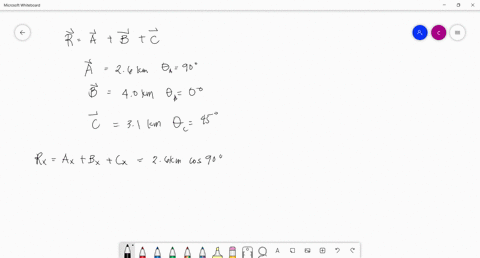 Microsoft Whiteboard
R⃗ = A⃗ + B⃗ + C⃗
C
A⃗ = 2.6 km θ_A = 90°
B⃗ = 4.0 km θ_A = 0°
C⃗ = 3.1 km θ_C = 45°
Rx = Ax + Bx + Cx = 2.6km cos 90°
A